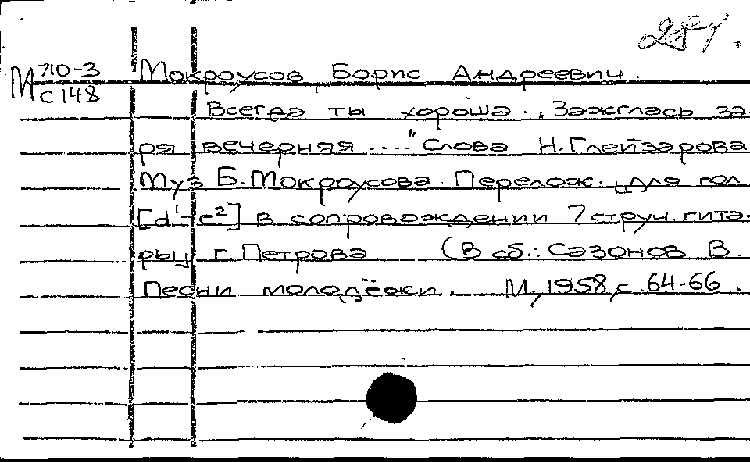 281.
М 710-3
С 148
Мокроусов, Борис Андреевич.
Всегда ты хороша. „Зажглась за-
ря вечерняя ...." Слова Н. Глейзарова
Муз Б. Мокроусова. Перелож. для гол
[d¹-c²] в сопровождении 7 струн. гита-
ры Г. Петрова (В сб.: Сазонов В.
Песни молодёжи. М, 1958, с 64-66.